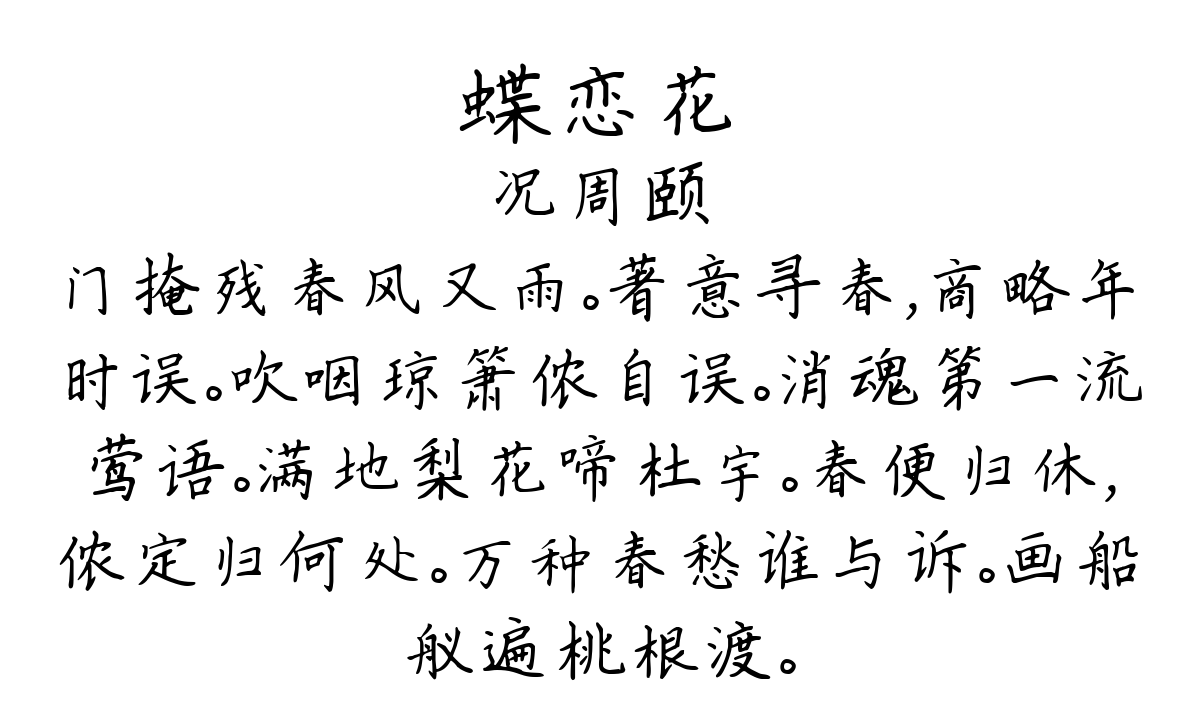 蝶恋花
况周颐
门掩残春风又雨。著意寻春,商略年
时误。吹咽琼箫侬自误。消魂第一流
莺语。满地梨花啼杜宇。春便归休,
侬定归何处。万种春愁谁与诉。画船
舣遍桃根渡。